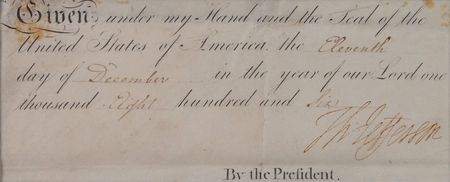 Given, under my Hand and the Seal of the
United States of America, the Eleventh
day of December in the year of our Lord one
thousand Eight hundred and Six
Th: Jefferson
By the Preſident.